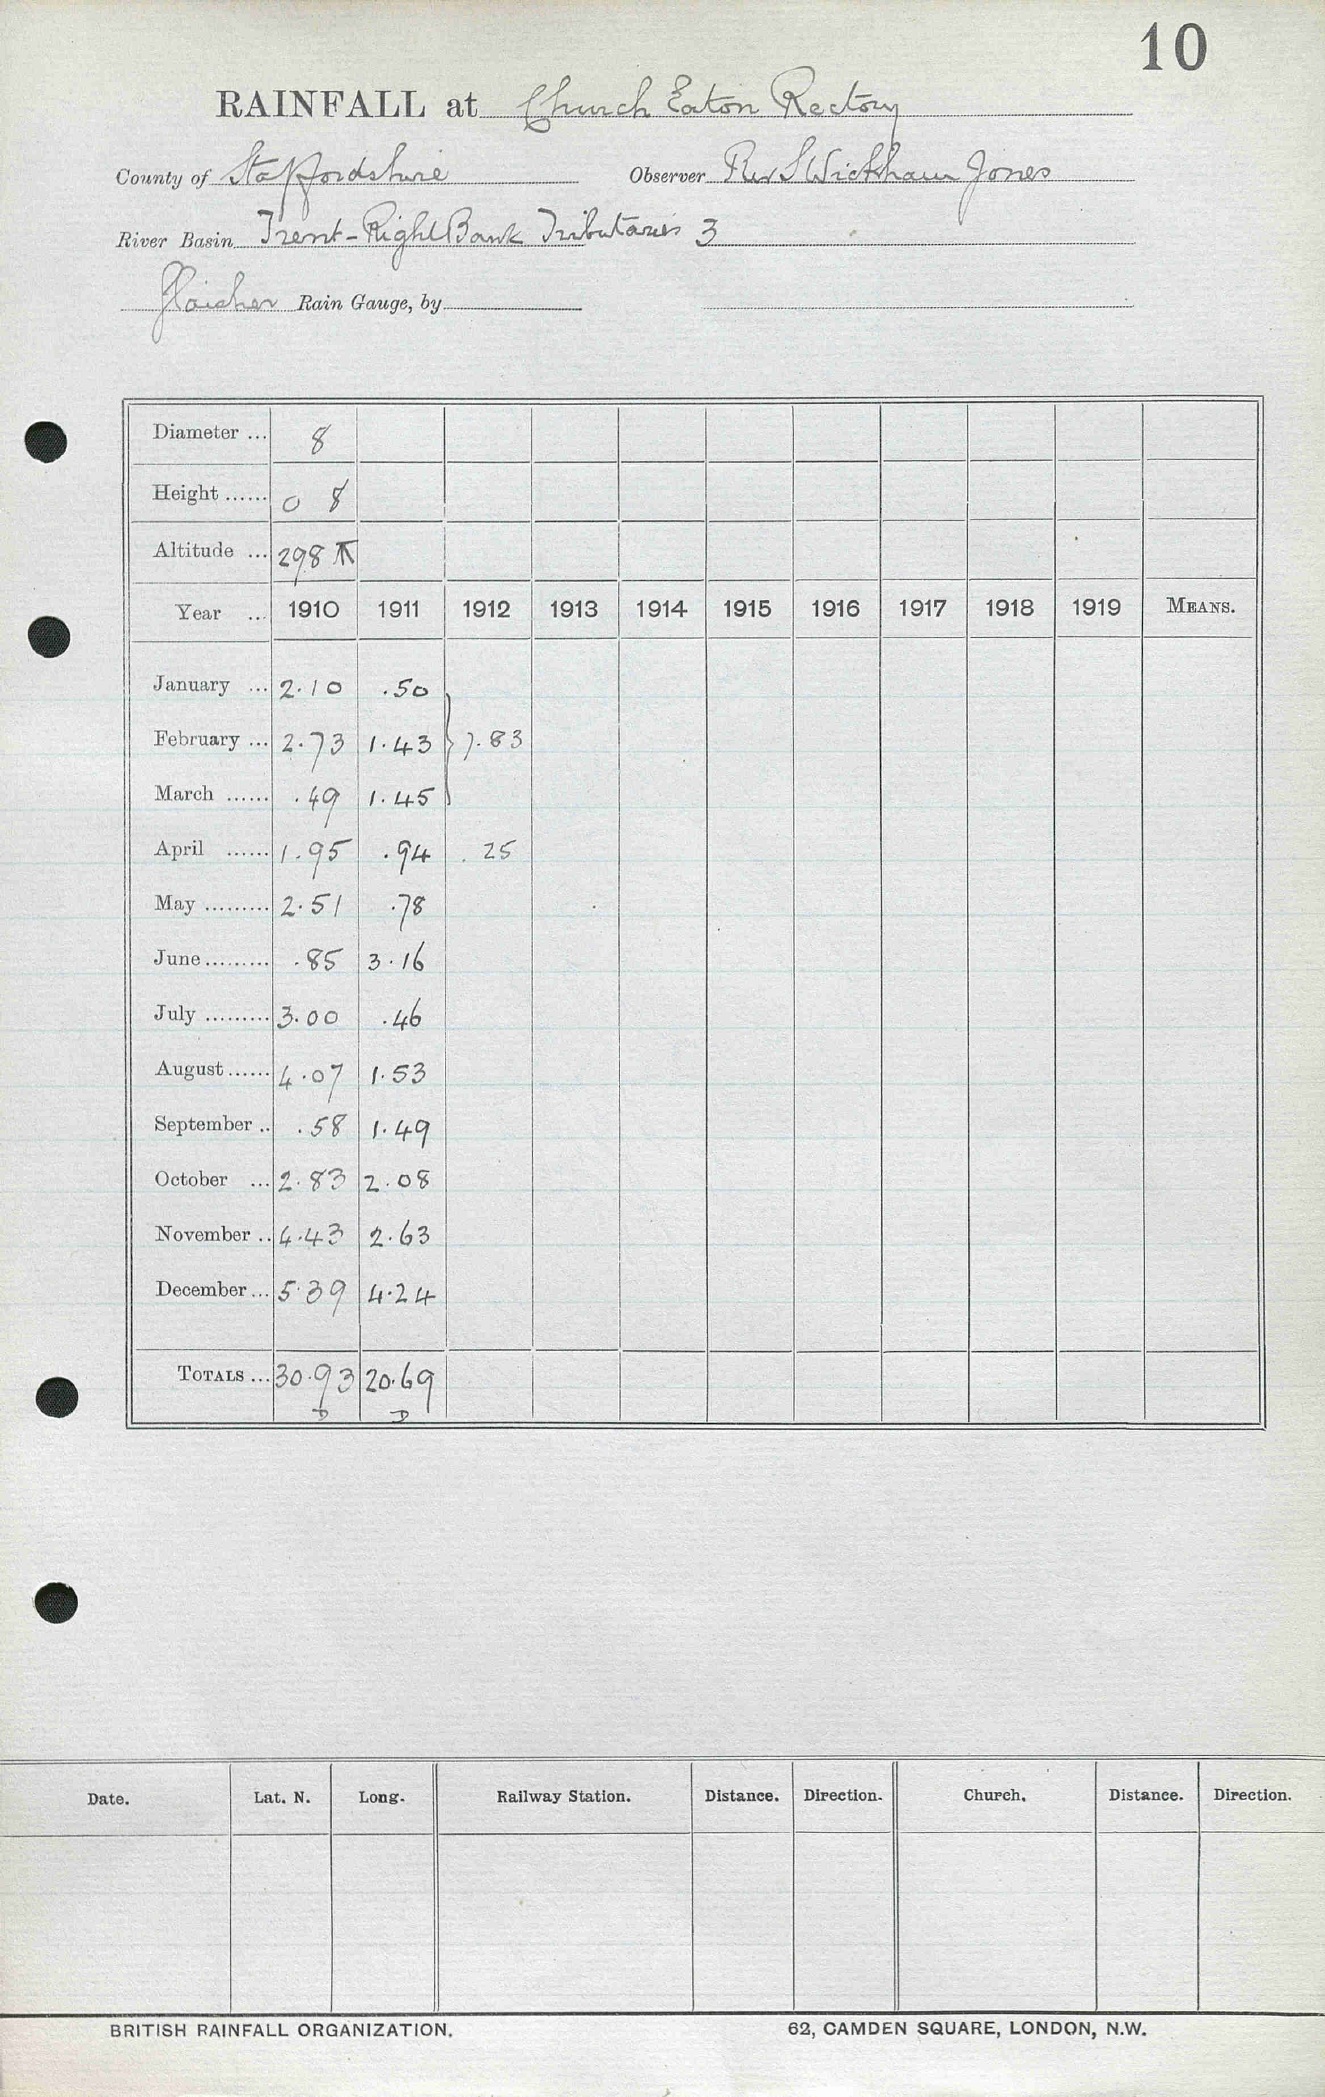 10
RAINFALL at Church Eaton Rectory
County of Staffordshire Observer Rev S Wickham Jones
River Basin Trent-Right Bank Tributaries 3
Glaisher Rain Gauge, by
Diameter ... 8
Height ...... 0 8
Altitude ... 298
Year ... 1910 1911 1912 1913 1914 1915 1916 1917 1918 1919 MEANS.
January ... 2.10 .50
February ... 2.73 1.43 } 7.83
March ...... .49 1.45
April ...... 1.95 .94 .25
May ......... 2.51 .78
June ......... .85 3.16
July ......... 3.00 .46
August ...... 4.07 1.53
September .. .58 1.49
October ... 2.83 2.08
November .. 4.43 2.63
December ... 5.39 4.24
TOTALS ... 30.93 20.69
D D
Date. Lat. N. Long. Railway Station. Distance. Direction. Church. Distance. Direction.
BRITISH RAINFALL ORGANIZATION. 62, CAMDEN SQUARE, LONDON, N.W.